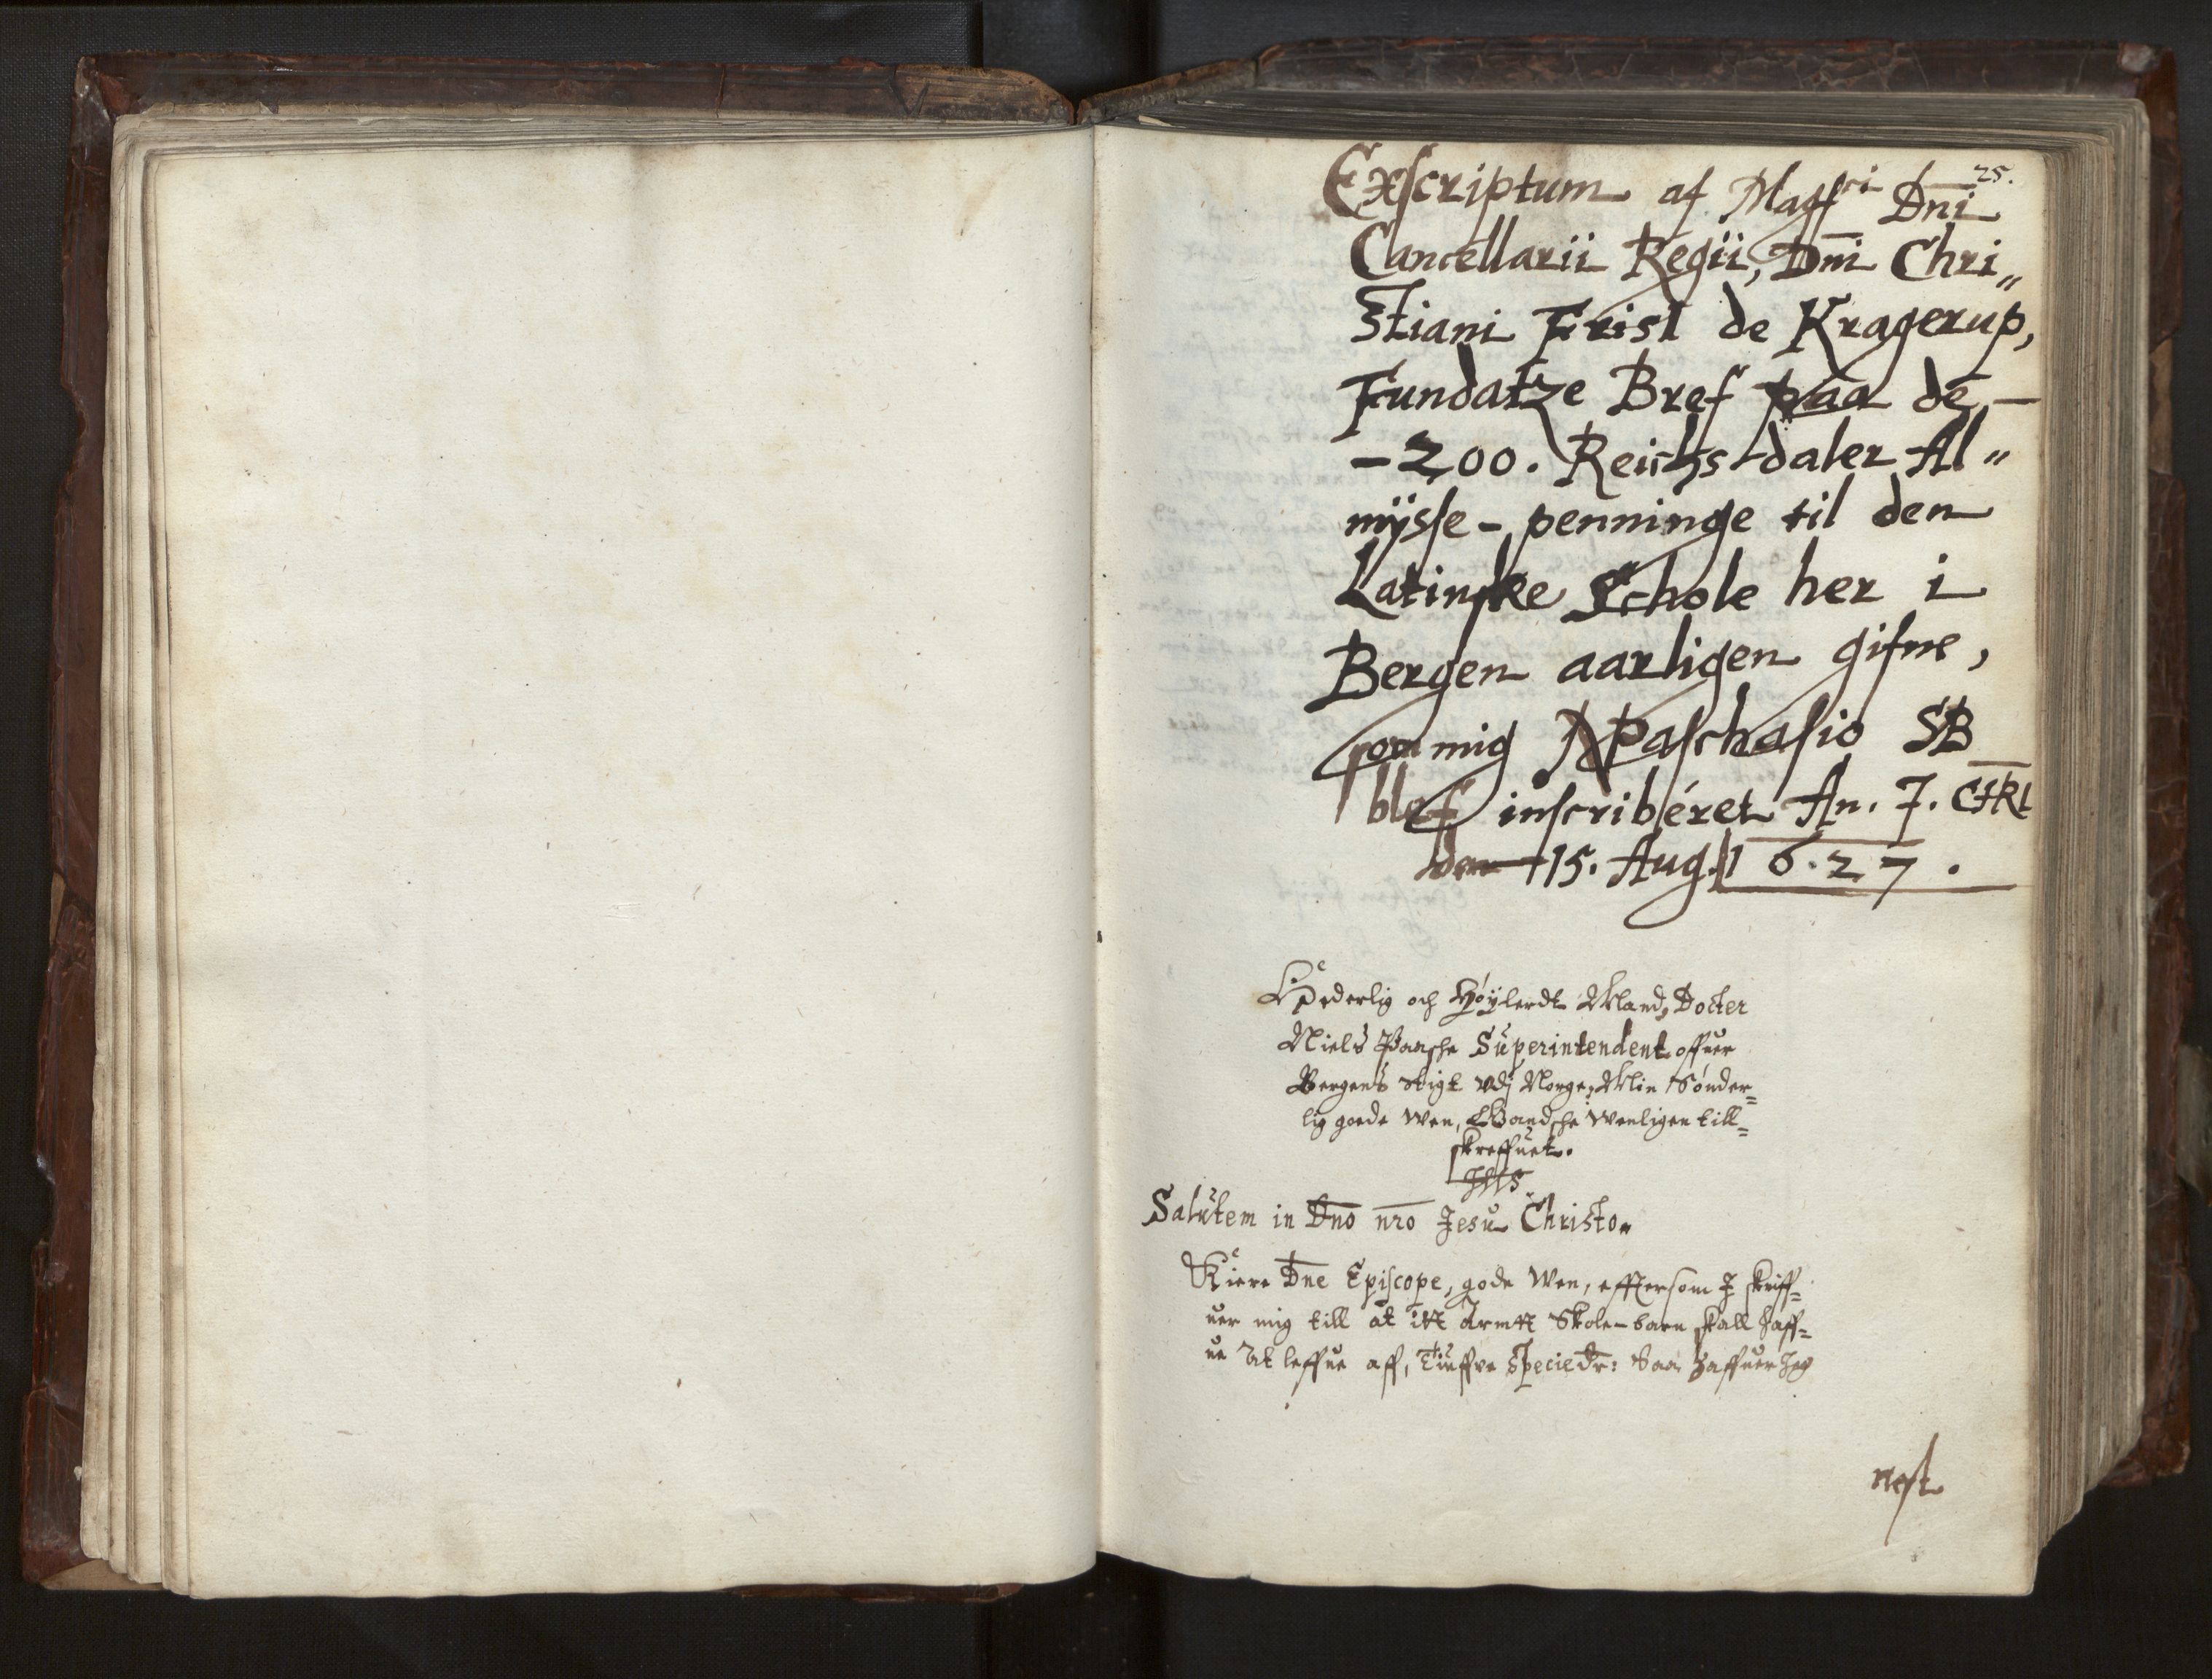 25.
Exscriptum af Magf^ci Dni
Cancellarii Regii, Dni Chri„
stiani Friss de Kragerup,
Fundatze Bref paa de –
– 200. Reichs daler Al„
mÿsse – penninge til den
Latinske Schole her i
Bergen aarligen gifne,
som mig N Paschasio SB
blef inscriberet An. J. CHRI
den 15. Aug. 1627.
Hæderlig och Høÿlerdt Mand, Docter
Niels Paaske Superintendent offuer
Bergens Stigt vdj Norge, Min Sønder=
lig goede Wen, Ganske Wenligen till=
skreffuet.
IHS.
Salutem in Dno nro Jesu Christo.
Kiere Dne Episcope, gode Wen, efftersom J skriff=
uer mig till at itt Armtt Skole-barn skall haff=
ue At leffue aff, Tiuffve Specie Dr: Saa haffuer Jeg
nest